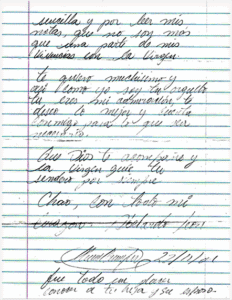 sencilla y por leer mis
notas, que no son más
que una parte de mis
vivencias con la Virgen
te quiero muchísimo y
así como yo soy tu orgullo
tu eres mi admiración, te
deseo lo mejor y
conmigo para lo que sea
necesario.
Que Dios te acompañe y
la Virgen guíe tu
sendero por siempre
Chao, con todo mi
corazón
que todo en
conocer a tu hija y su esposo